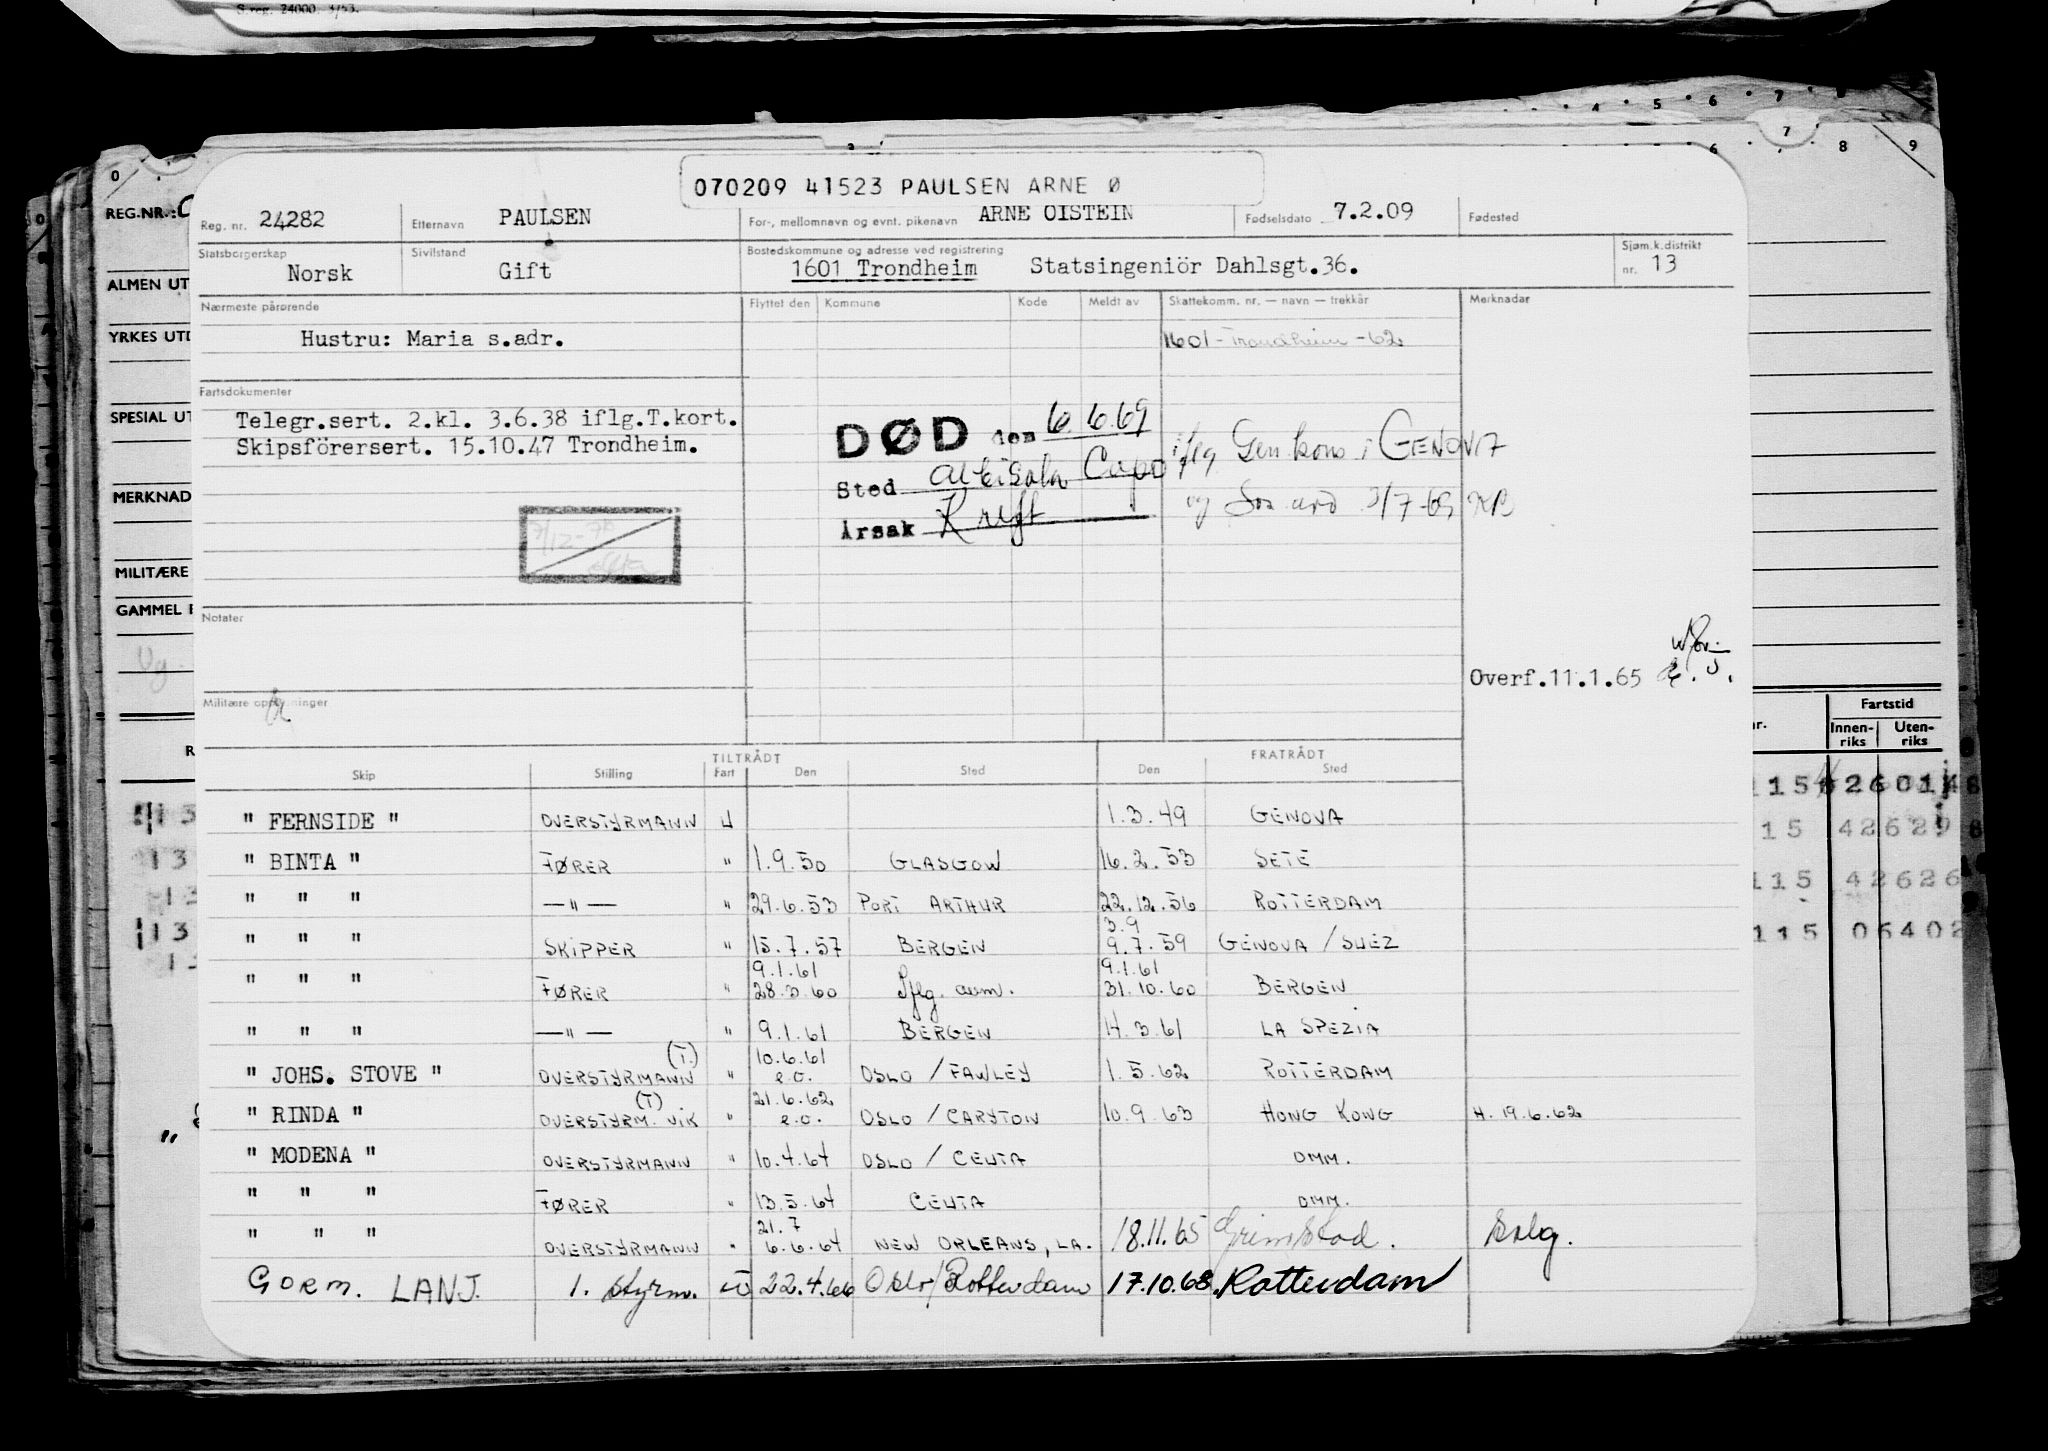 S.reg. 24000. 3/53.
4 5 6 7 8
0 7 6 8 9
070209 41523 PAULSEN ARNE Ø
REG.NR.:
Reg. nr. 24282 Etternavn PAULSEN For-, mellomnavn og evnt. pikenavn ARNE OISTEIN Fødselsdato 7.2.09 Fødested
Statsborgerskap Norsk Sivilstand Gift Bostedskommune og adresse ved registrering 1601 Trondheim Statsingeniör Dahlsgt.36. Sjøm.k.distrikt nr. 13
ALMEN UT
Nærmeste pårørende Flyttet den Kommune Kode Meldt av Skattekomm. nr. — navn — trekkår Merknader
YRKES UTD
Hustru: Maria s.adr. 1601-Trondheim-62
Fartsdokumenter
SPESIAL UT
Telegr.sert. 2.kl. 3.6.38 iflg.T.kort.
Skipsförersert. 15.10.47 Trondheim.
DØD den 6.6.69 iflg Gen kons i GENOVA
Sted Albisola Capo
og 3/7-69 KB
Årsak Kreft
MERKNAD
7/12-70
MILITÆRE
GAMMEL
Notater
Ug
Overf.11.1.65
Militære opplysninger
Fartstid
Innen-riks Uten-riks
TILTRÅDT FRATRÅDT
Skip Stilling Fart Den Sted Den Sted
" FERNSIDE " OVERSTYRMANN U 1.3.49 GENOVA
" BINTA " FØRER " 1.9.50 GLASGOW 16.2.53 SETE
" " " —"— " 29.6.53 PORT ARTHUR 22.12.56 ROTTERDAM
" " " SKIPPER " 15.7.57 BERGEN 3.9 9.7.59 GENOVA / SUEZ
" " " FØRER " 9.1.61 28.3.60 Iflg. anm. 9.1.61 31.10.60 BERGEN
" " " —"— " 9.1.61 BERGEN 14.3.61 LA SPEZIA
" JOHS. STOVE " OVERSTYRMANN (T.) " 10.6.61 e.o. OSLO / FAWLEY 1.5.62 ROTTERDAM
" RINDA " OVERSTYRM. VIK (T) " 21.6.62 e.o. OSLO / CARYTON 10.9.63 HONG KONG H. 19.6.62
" MODENA " OVERSTYRMANN " 10.4.64 OSLO / CEUTA OMM.
" " " FØRER " 13.5.64 CEUTA OMM.
" " " OVERSTYRMANN " 21.7 6.6.64 NEW ORLEANS, LA. 18.11.65 Grimstad. Solg.
GORM. LANJ. 1. styrm. U 22.4.66 Oslo/Rotterdam 17.10.68 Rotterdam